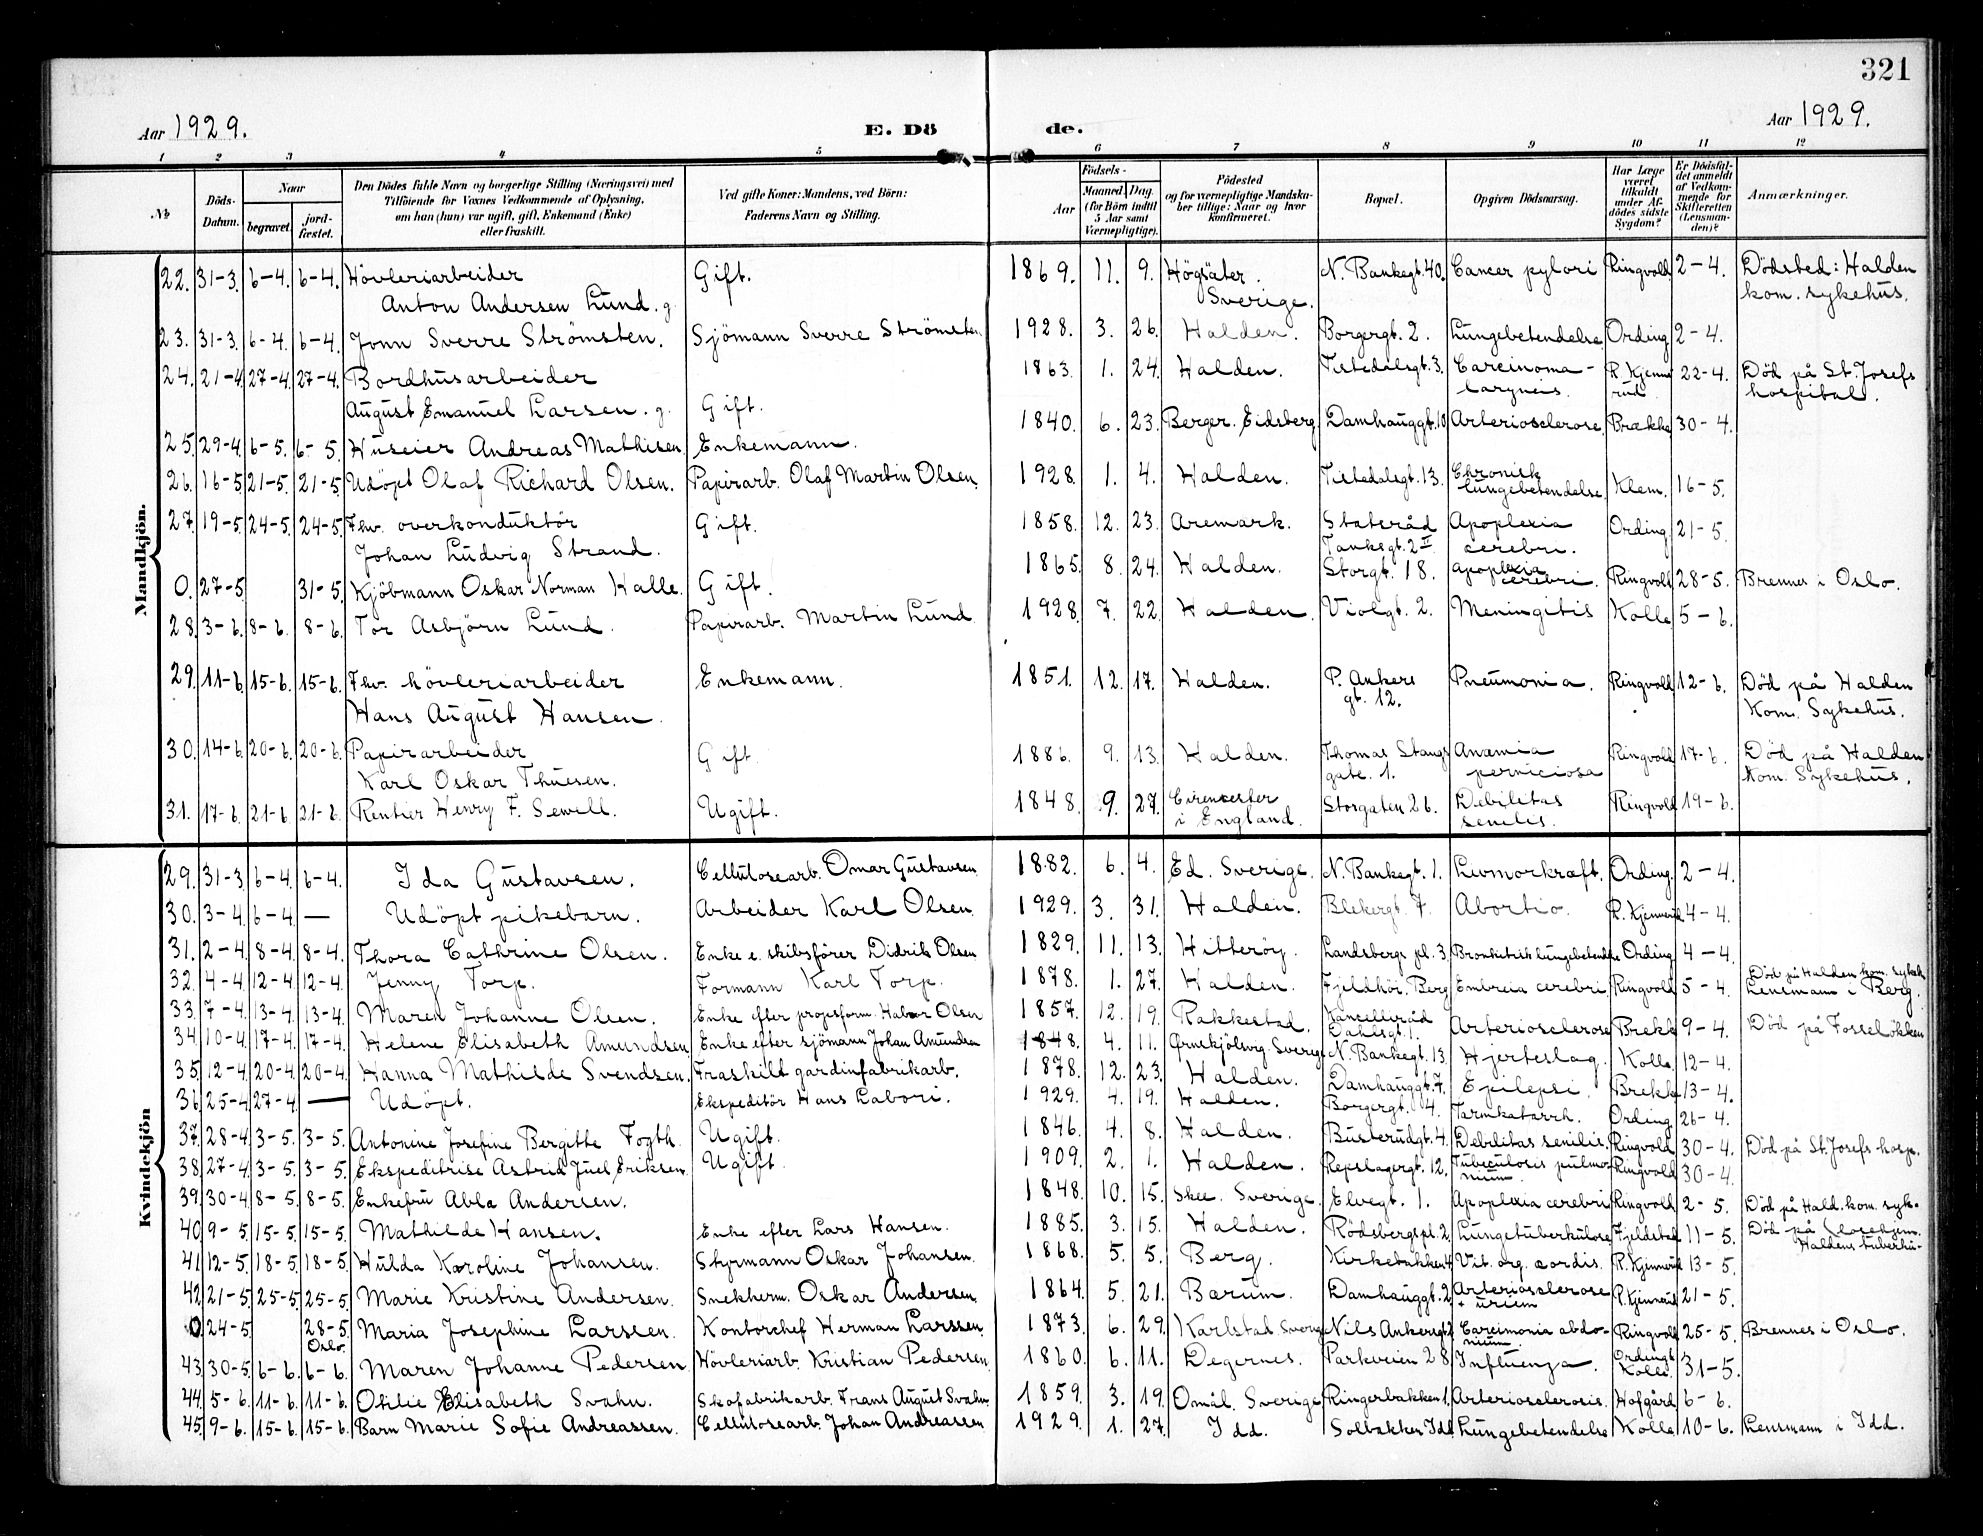 321
Aar 1929.
E. Dö
de.
Aar 1929.
1 2 3 4 5 6 7 8 9 10 11 12
No
Döds-Datum.
Naar
begravet.
jord-fæstet.
Den Dödes fulde Navn og borgerlige Stilling (Næringsvei) med
Tilföiende for Voxnes Vedkommende af Oplysning,
om han (hun) var ugift, gift, Enkemand (Enke)
eller fraskilt.
Ved gifte Koner: Mandens, ved Börn:
Faderens Navn og Stilling.
Födsels-
Aar
Maaned. Dag.
(for Börn indtil
5 Aar samt
Værnepligtige).
Födested
og for værnepligtige Mandska-
ber tillige: Naar og hvor
konfirmeret.
Bopæl.
Opgiven Dödsaarsag.
Har Læge
været
tilkaldt
under Af-
dödes sidste
Sygdom?
Er Dödsfal-
det anmeldt
af Vedkom-
mende for
Skifteretten
(Lensman-
den)?
Anmærkninger.
Mandkjön.
22. 31-3. 6-4. 6-4. Hövleriarbeider Gift. 1869. 11. 9. Högsäter. N. Bankegt. 40. Cancer pylori Ringvold 2-4. Dödsted: Halden
Anton Andersen Lund. g. Sverige. kom. sykehus.
23. 31-3. 6-4. 6-4. Jonn Sverre Strömsten. Sjömann Sverre Strömsten. 1928. 3. 26. Halden. Borgergt. 2. Lungebetendelse Ording 2-4.
24. 21-4. 27-4. 27-4. Bordhusarbeider 1863. 1. 24. Halden. Tistedalsgt. 3. Carcinoma- R. Kjenne 22-4. Död på St. Josefs
August Emanuel Larsen. g. Gift. laryncis. rud hospital.
25. 29-4. 6-5. 6-5. Huseier Andreas Mathisen. Enkemann. 1840. 6. 23. Berger. Eidsberg Damhauggt. 10 Arteriosclerose. Brække 30-4.
26. 16-5. 21-5. 21-5. Udöpt Olaf Richard Olsen. Papirarb. Olaf Martin Olsen. 1928. 1. 4. Halden. Tistedalsgt. 13. Chronisk Klem. 16-5.
lungebetendelse
27. 19-5. 24-5. 24-5. Fhv. overkonduktör Gift. 1858. 12. 23. Aremark. Statsråd Apoplexia Ording 21-5.
Johan Ludvig Strand. Tanksgt. 2 II cerebri.
0. 27-5. 31-5. Kjöbmann Oskar Norman Kalle. Gift. 1865. 8. 24. Halden. Storgt. 18. apoplexia cerebri. Ringvold 28-5. Brennes i Oslo.
28. 3-6. 8-6. 8-6. Tor Asbjörn Lund. Papirarb. Martin Lund 1928. 7. 22. Halden. Violgt. 2. Meningitis Kolle 5-6.
29. 11-6. 15-6. 15-6. Fhv. hövleriarbeider Enkemann. 1851. 12. 17. Halden. P. Ankers Pneumonia. Ringvold 12-6. Död på Halden
Hans August Hansen. gt. 12. Kom. Sykehus.
30. 14-6. 20-6. 20-6. Papirarbeider Gift. 1886. 9. 13. Halden. Thomas Stangs Anæmia Ringvold 17-6. Död på Halden
Karl Oskar Thuesen. gate. 1. perniciosa Kom. Sykehus.
31. 17-6. 21-6. 21-6. Rentier Henry F. Sewell. Ugift. 1848. 9. 27. Cirencester Storgaten 26. Debilitas Ringvold 19-6.
i England. senilis.
Kvindekjön
29. 31-3. 6-4. 6-4. Ida Gustavsen. Cellulosearb. Omar Gustavsen 1882. 6. 4. Ed. Sverige. N. Bankegt. 1. Livmorkræft. Ording. 2-4.
30. 3-4. 6-4. — Udöpt pikebarn. Arbeider Karl Olsen. 1929. 3. 31. Halden. Blekergt. 7. Abortio. R. Kjennerud 4-4.
31. 2-4. 8-4. 8-4. Thora Cathrine Olsen. Enke e. skibsförer Didrik Olsen 1829. 11. 13. Hitteröy. Landsbergs pl. 3. Bronkitisk lungebetendelse Ording 4-4.
32. 4-4. 12-4. 12-4. Jenny Torp. Formann Karl Torp. 1878. 1. 27. Halden. Fjeldhöi. Berg Embreia cerebri Ringvold 5-4. Död på Halden kom. sykeh.
Lensmann i Berg.
33. 7-4. 13-4. 13-4. Maren Johanne Olsen. Enke efter propsform. Halvor Olsen 1857. 12. 19. Rakkestad. Kancelliråd Dahlsgt. 1. Arteriosclerose Brekke 9-4. Död på Fosselökken
34. 10-4. 17-4. 17-4. Helene Elisabeth Amundsen Enke efter sjömann Johan Amundsen 1848. 4. 11. Sverige N. Bankegt. 13. Hjerteslag. Kolle 12-4.
35. 12-4. 20-4. 20-4. Hanna Mathilde Svendsen. Fraskilt gardinfabrikarb. 1878. 12. 23. Halden. Damhauggt. 7. Epilepsi. Brekke 13-4.
36. 25-4. 27-4. — Udöpt. Ekspeditör Hans Labori. 1929. 4. 19. Halden. Borgergt. 4. Tarmkatarrh. Ording 26-4.
37. 28-4. 3-5. 3-5. Antonine Josefine Bergitte Fogth. Ugift. 1846. 4. 8. Halden. Busterudgt. 4. Debilitas senilis. Ringvold 30-4. Död på St. Josefs hosp.
38. 27-4. 3-5. 3-5. Ekspeditrise Astrid Juel Eriksen. Ugift. 1909. 2. 1. Halden. Repslagergt. 12. Tuberculosis pulmo- Ringvold 30-4.
num.
39. 30-4. 8-5. 8-5. Enkefru Abla Andersen. 1848. 10. 15. Skee. Sverige. Elvegt. 1. Apoplexia cerebri Ringvold 2-5. Död på Hald. kom. syk.
40. 9-5. 15-5. 15-5. Mathilde Hansen. Enke efter Lars Hansen. 1885. 3. 15. Halden. Rödsbergspl. 2. Lungetuberkulose Fjeldstad 11-5. Död på
Haldens tuberhu-
41. 12-5. 18-5. 18-5. Hulda Karoline Johansen. Styrmann Oskar Johansen. 1868. 5. 5. Berg. Kirkebakken 4. Vit. org. cordis. R. Kjennerud 13-5.
42. 21-5. 25-5. 25-5. Marie Kristine Andersen. Snekkerm. Oskar Andersen. 1864. 5. 21. Bærum. Damhauggt. 2. Arteriosclerose R. Kjennerud 21-5.
+ urium
0. 24-5. 28-5. Maria Josephine Larssen. Kontorchef Herman Larssen. 1873. 6. 29. Karlstad Sverige Nils Ankersgt. Carcimonia abdo- Ringvold 25-5. Brennes i Oslo.
Oslo. nium.
43. 30-5. 6-6. 6-6. Maren Johanne Pedersen Hövleriarb. Kristian Pedersen. 1860. 6. 11. Degernes. Parkveien 28 Influenza. Ording & Kolle. 31-5.
44. 5-6. 11-6. 11-6. Otilie Elisabeth Svahn. Skofabrikarb. Frans August Svahn. 1859. 3. 19. Omål. Sverige Ringerbakken 1. Arteriosclerosis. Hofgård 6-6.
45. 9-6. 15-6. 15-6. Barn Marie Sofie Andreassen. Cellulosearb. Johan Andreassen 1929. 1. 27. Idd. Solbakken Idd Lungebetendelse Kolle 10-6. Lensmann i Idd.